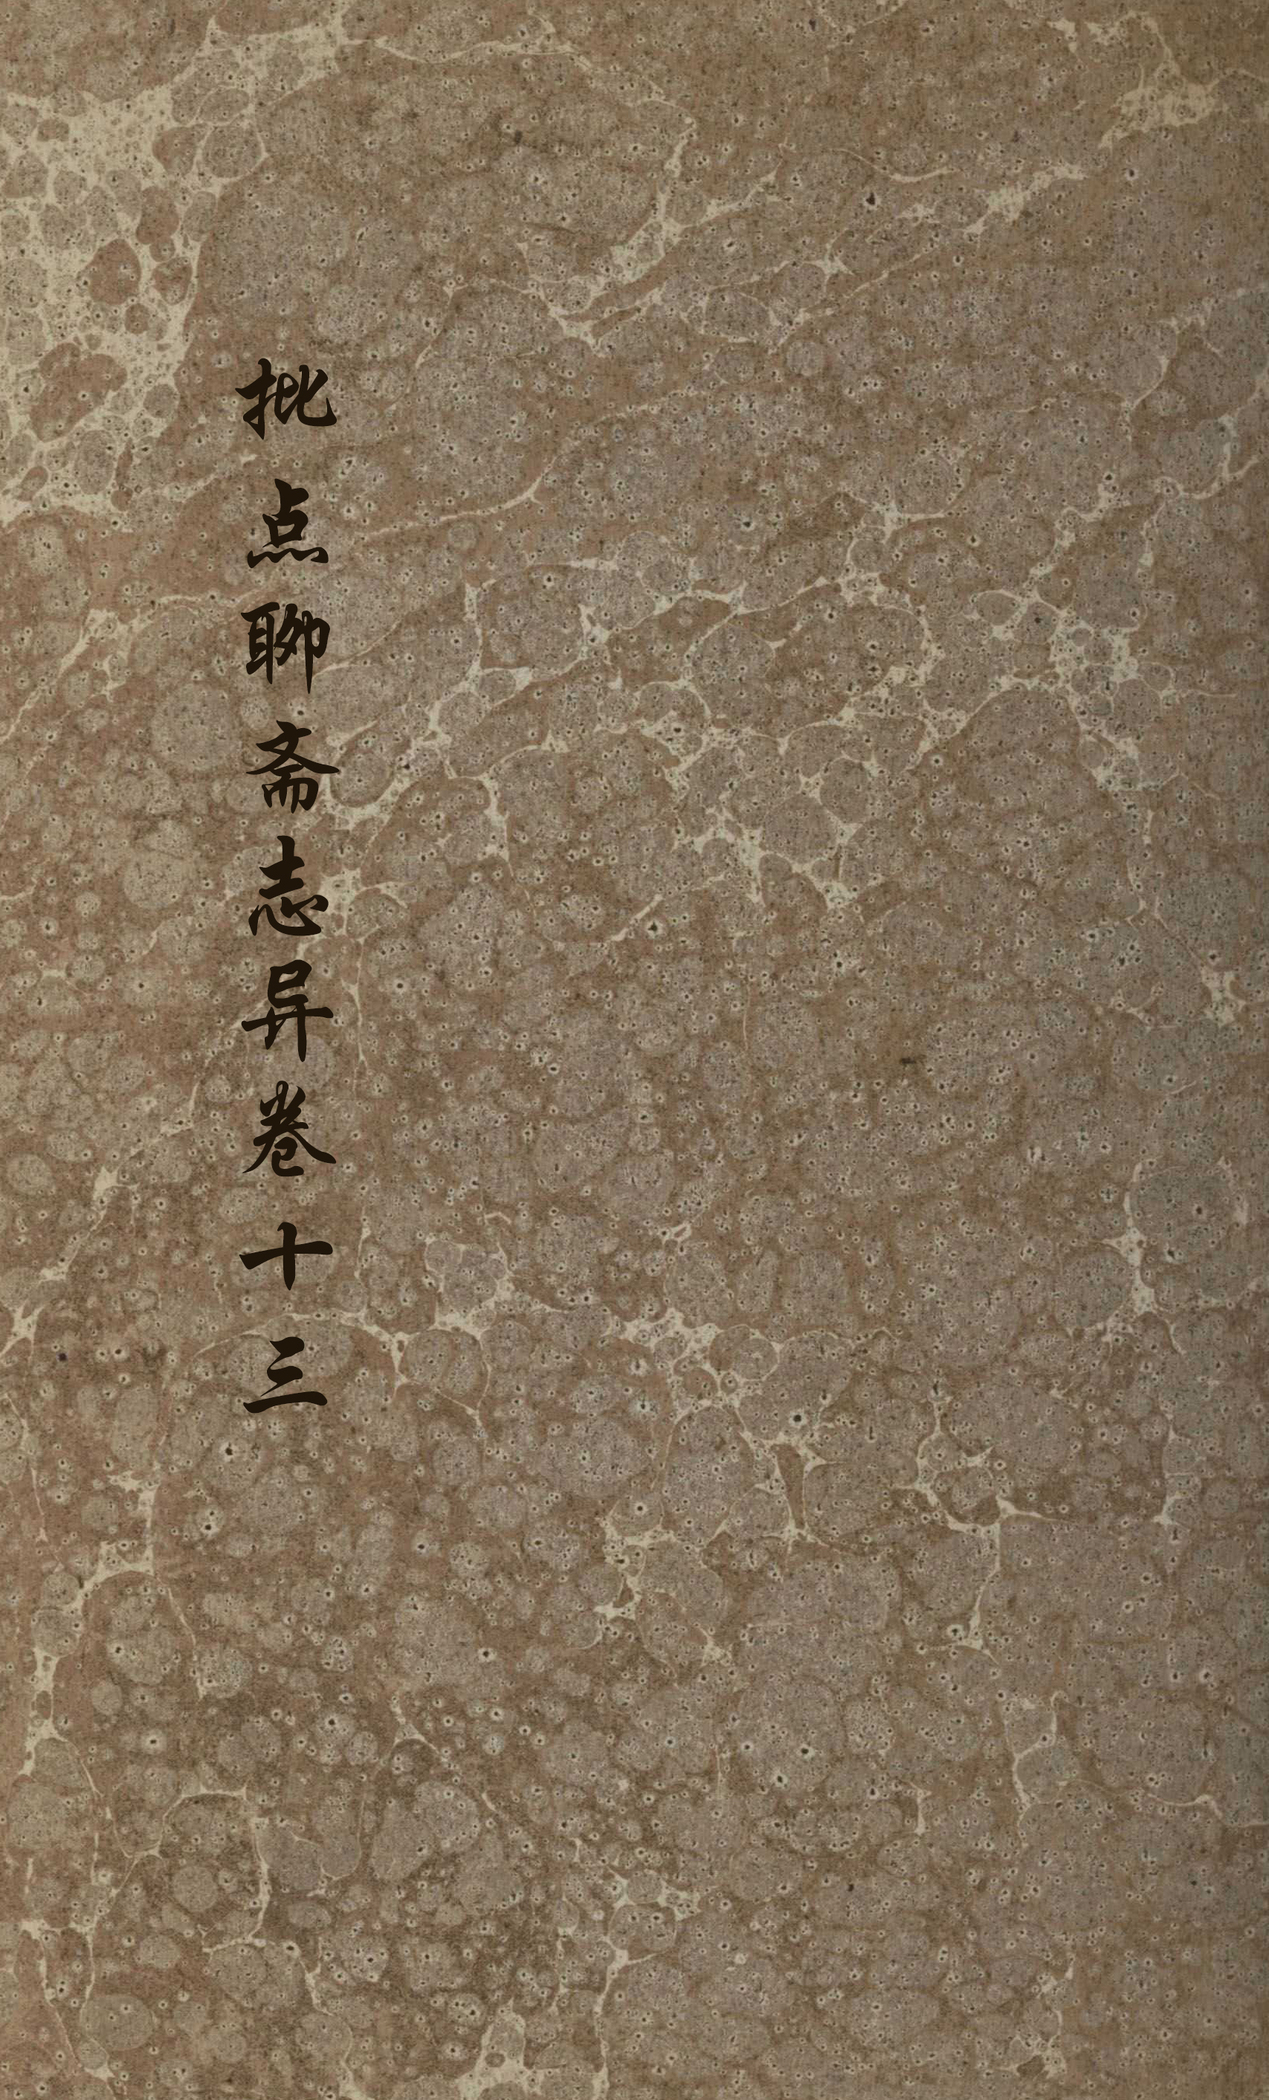 批点聊斋志异卷十三